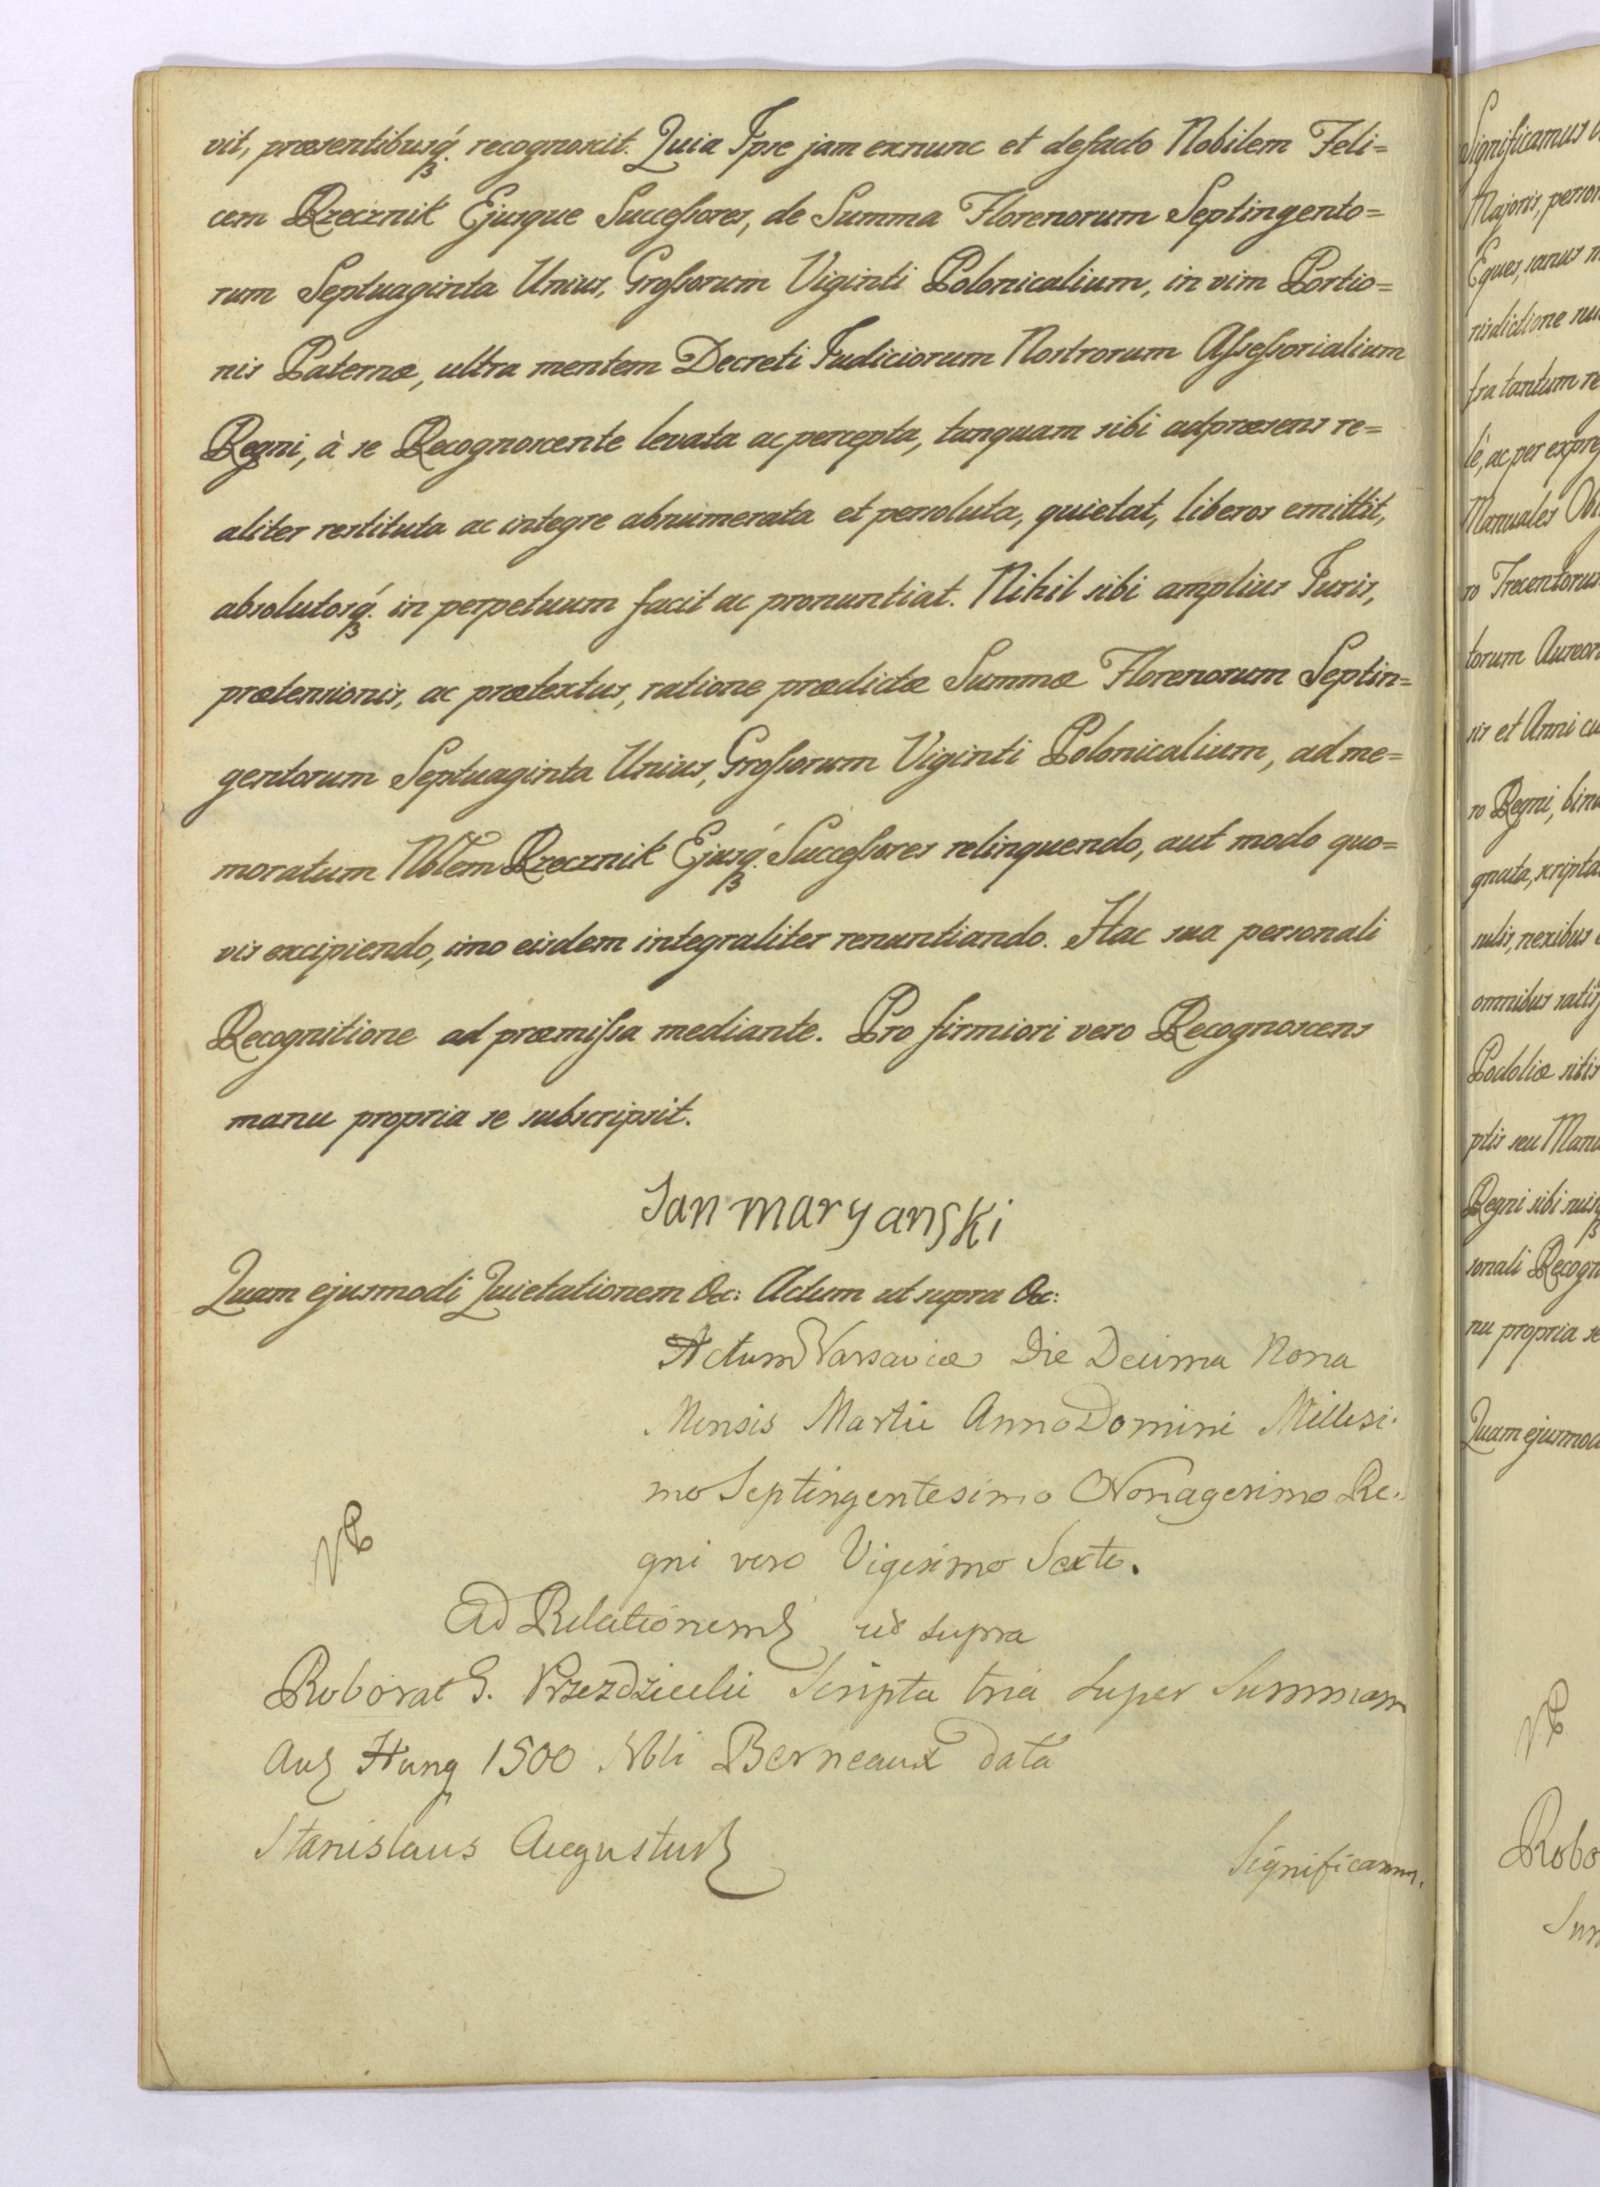 vit, præsentibusq́ʒ recognoscit. Quia Ipse jam exnunc et defacto Nobilem Feli=
cem Rzecznik Ejusque Successores, de Summa Florenorum Septingento=
rum Septuaginta Unius, Grossorum Viginti Polonicalium, in vim Portio=
nis Paternæ, ultra mentem Decreti Judiciorum Nostrorum Assessorialium
Regni, à se Recognoscente levata ac percepta, tanquam sibi adpræsens re=
aliter restituta ac integre abnumerata et persoluta, quietat, liberos emittit,
absolutosq́ʒ in perpetuum facit ac pronuntiat. Nihil sibi amplius Juris,
prætensionis, ac prætextus, ratione prædictæ Summæ Florenorum Septin=
gentorum Septuaginta Unius, Grossorum Viginti Polonicalium, ad me=
moratum Nblem Rzecznik Ejusq́ʒ Successores relinquendo, aut modo quo=
vis excipiendo, imo eisdem integraliter renuntiando. Hac sua personali
Recognitione ad præmissa mediante. Pro firmiori vero Recognoscens
manu propria se subscripsit.
Jan maryanski
Quam ejusmodi Quietationem &c: Actum ut supra &c:
Actum Varsaviæ Die Decima Nona
Mensis Martii Anno Domini Millesi=
mo Septingentesimo Nonagesimo Re=
gni vero Vigesimo Sexto.
Ad Relationem ut supra
Roborat G. Przezdziecki Scripta tria super Summam
Aur Hung 1500 Nbli Berneaux data
Stanislaus Augustus
Significamus.
Significamus
Majoris, person
Eques, sanus m
risdictione
fra tantum re
le, ac per expres
Manuales
ro Trecentorum
torum Aureor
sis et Anni cu
ro Regni, bina
gnata, scripta
sulis, nexibus
omnibus satis
Podoliæ sitis
ptis seu Manu
Regni sibi suisqʒ
sonali Recogn
nu propria se
Quam ejusmod
Robo
Sum